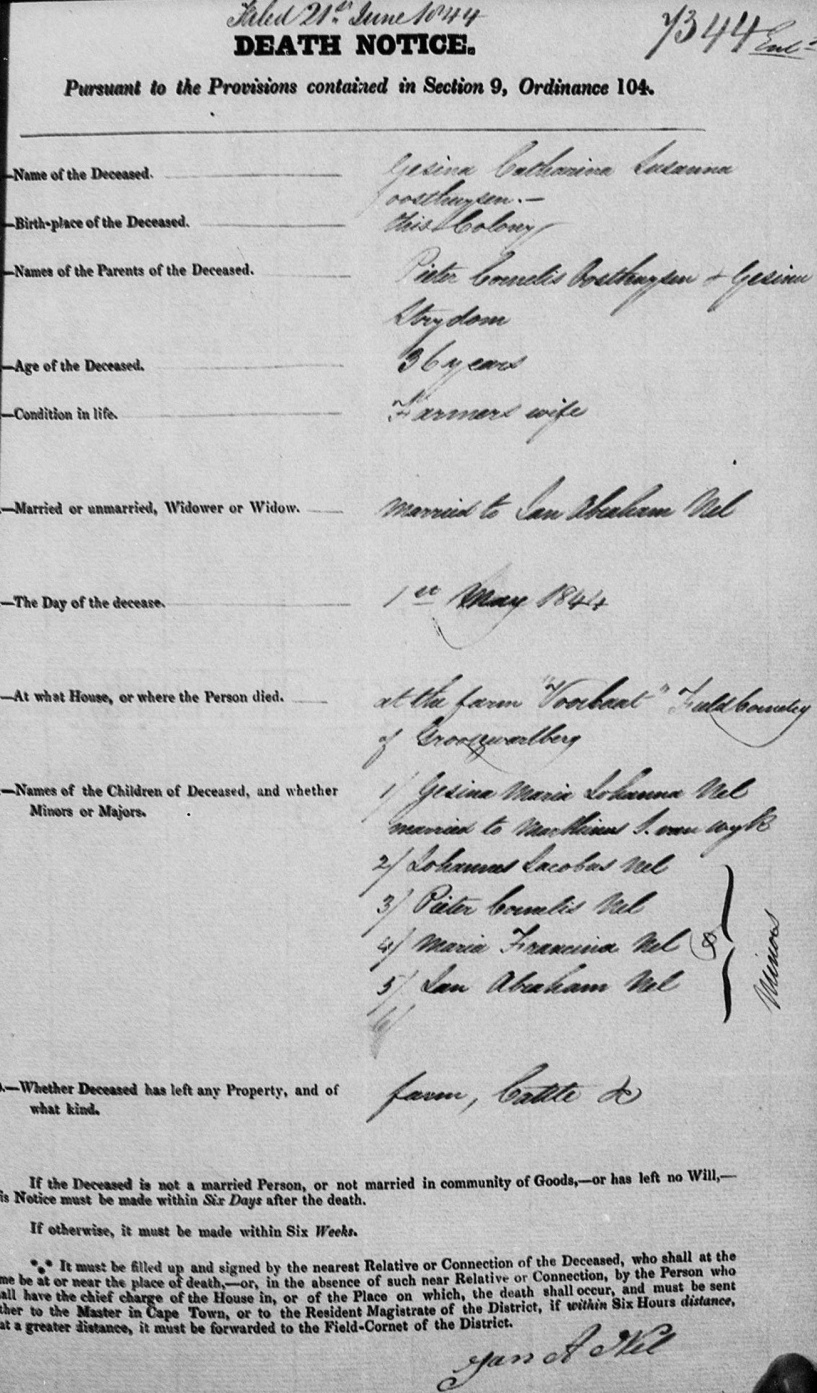 Filed 21st June 1844
7344
DEATH NOTICE.
Pursuant to the Provisions contained in Section 9, Ordinance 104.
—Name of the Deceased. Gesina Catharina Susanna
oosthuysen.—
—Birth-place of the Deceased. this Colony
—Names of the Parents of the Deceased. Pieter Cornelis Oosthuysen & Gesina
Strydom
—Age of the Deceased. 36 years
—Condition in life. Farmers wife
—Married or unmarried, Widower or Widow. Married to Jan Abraham Nel
—The Day of the decease. 1st May 1844
—At what House, or where the Person died. at the farm "Voorbaat" Field Cornetcy
of Groot
—Names of the Children of Deceased, and whether
Minors or Majors.
1/ Gesina Maria Johanna Nel
married to Marthinus J. van Wyk
2/ Johannes Jacobus Nel
3/ Pieter Cornelis Nel
4/ Maria Francina Nel &
5/ Jan Abraham Nel
6/
Minors
.—Whether Deceased has left any Property, and of
what kind.
farm, Cattle &c
If the Deceased is not a married Person, or not married in community of Goods,—or has left no Will,—
is Notice must be made within Six Days after the death.
If otherwise, it must be made within Six Weeks.
*⁎* It must be filled up and signed by the nearest Relative or Connection of the Deceased, who shall at the
me be at or near the place of death,—or, in the absence of such near Relative or Connection, by the Person who
all have the chief charge of the House in, or of the Place on which, the death shall occur, and must be sent
ther to the Master in Cape Town, or to the Resident Magistrate of the District, if within Six Hours distance,
at a greater distance, it must be forwarded to the Field-Cornet of the District.
Jan A Nel